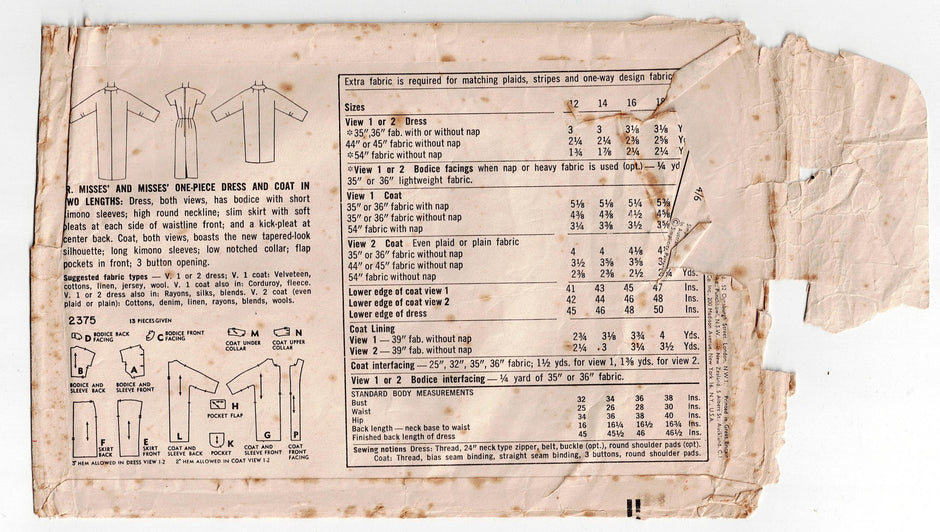 R. MISSES' AND MISSES' ONE-PIECE DRESS AND COAT IN
WO LENGTHS: Dress, both views, has bodice with short
kimono sleeves; high round neckline; slim skirt with soft
pleats at each side of waistline front; and a kick-pleat at
center back. Coat, both views, boasts the new tapered-look
silhouette; long kimono sleeves; low notched collar; flap
pockets in front; 3 button opening.
Suggested fabric types — V. 1 or 2 dress; V. 1 coat: Velveteen,
cottons, linen, jersey, wool. V. 1 coat also in: Corduroy, fleece.
V. 1 or 2 dress also in: Rayons, silks, blends. V. 2 coat (even
plaid or plain): Cottons, denim, linen, rayons, blends, wools.
2375 13 PIECES GIVEN
D BODICE BACK FACING
C BODICE FRONT FACING
M COAT UNDER COLLAR
N COAT UPPER COLLAR
B
BODICE AND SLEEVE BACK
A
BODICE AND SLEEVE FRONT
H
POCKET FLAP
F SKIRT BACK
E SKIRT FRONT
L
COAT AND SLEEVE BACK
K
POCKET
G
COAT AND SLEEVE FRONT
P
COAT FRONT FACING
3" HEM ALLOWED IN DRESS VIEW 1-2 2" HEM ALLOWED IN COAT VIEW 1-2
Extra fabric is required for matching plaids, stripes and one-way design fabric
Sizes 12 14 16 18
View 1 or 2 Dress
*35",36" fab. with or without nap 3 3 3⅛ 3⅛ Y
44" or 45" fabric without nap 2¼ 2¼ 2⅜ 2⅝ Y
*54" fabric without nap 1¾ 1⅞ 2¼ 2¼ Y
*View 1 or 2 Bodice facings when nap or heavy fabric is used (opt.) — ¼ yd
35" or 36" lightweight fabric.
View 1 Coat
35" or 36" fabric with nap 5⅛ 5⅛ 5¼ 5⅜
35" or 36" fabric without nap 4⅜ 4⅜ 4½ 4⅝
54" fabric with nap 3¼ 3⅜ 3½
View 2 Coat Even plaid or plain fabric
35" or 36" fabric without nap 4 4 4⅛
44" or 45" fabric without nap 3½ 3⅝ 3⅝
54" fabric without nap 2⅜ 2⅜ 2½ Yds.
Lower edge of coat view 1 41 43 45 47 Ins.
Lower edge of coat view 2 42 44 46 48 Ins.
Lower edge of dress 45 46 48 50 Ins.
Coat Lining
View 1 — 39" fab. without nap 2¾ 3⅛ 3¾ 4 Yds.
View 2 — 39" fab. without nap 2¼ 3 3¼ 3½ Yds.
Coat interfacing — 25", 32", 35", 36" fabric; 1½ yds. for view 1, 1⅜ yds. for view 2.
View 1 or 2 Bodice interfacing — ¼ yard of 35" or 36" fabric.
STANDARD BODY MEASUREMENTS
Bust 32 34 36 38 Ins.
Waist 25 26 28 30 Ins.
Hip 34 36 38 40 Ins.
Back length — neck base to waist 16 16¼ 16½ 16¾ Ins.
Finished back length of dress 45 45½ 46 46½ Ins.
Sewing notions Dress: Thread, 24" neck type zipper, belt, buckle (opt.), round shoulder pads (opt).
Coat: Thread, bias seam binding, straight seam binding, 3 buttons, round shoulder pads.